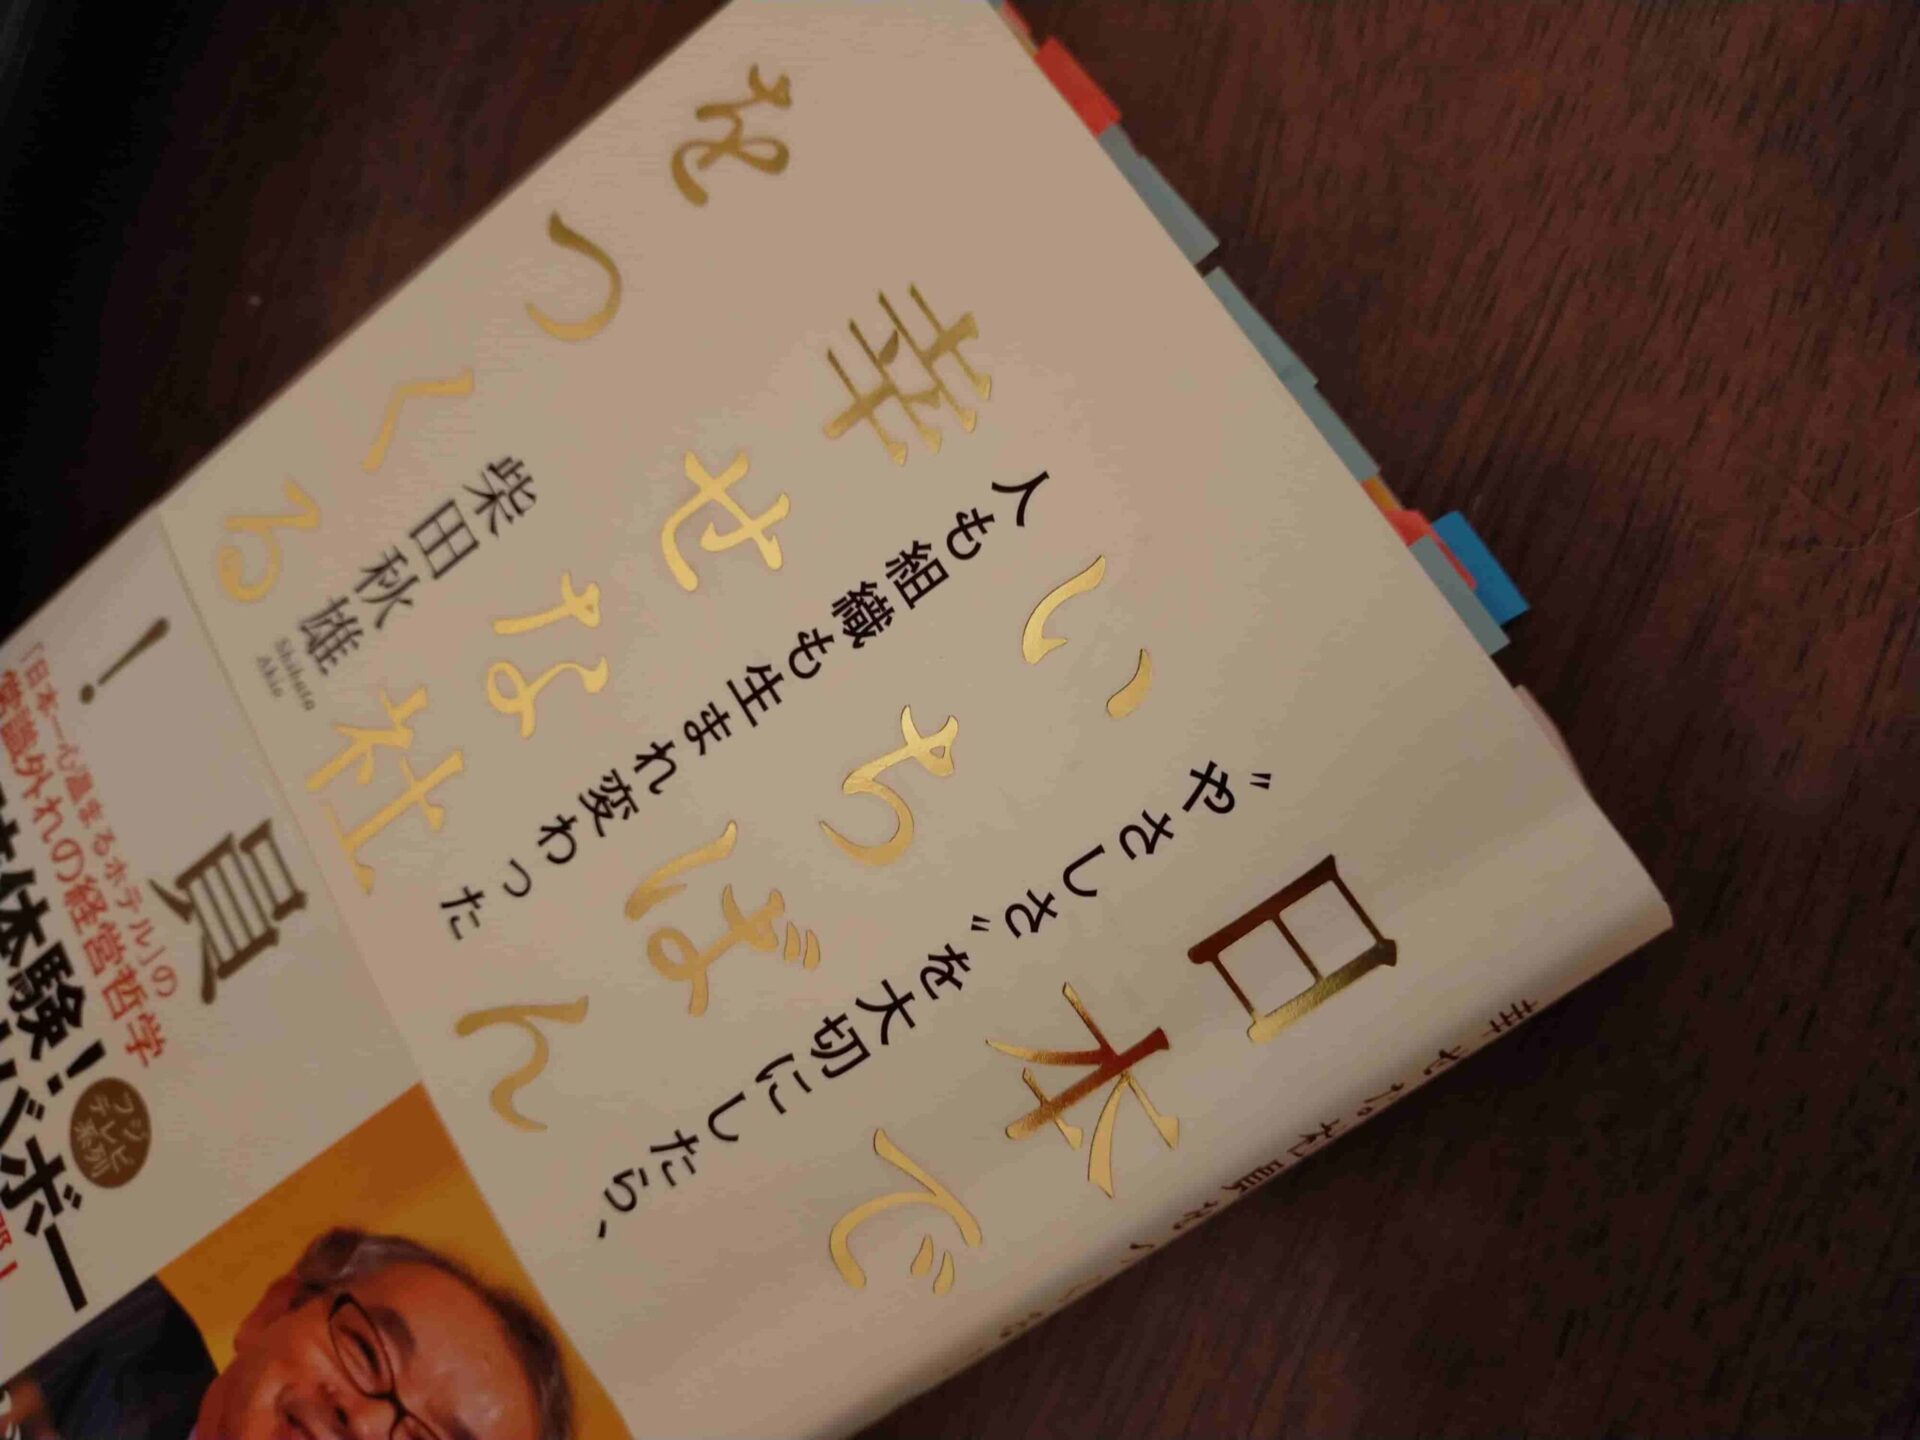 日本で
いちばん
幸せな社員
をつくる！
“やさしさ”を大切にしたら、
人も組織も生まれ変わった
柴田秋雄
Shibata
Akio
「日本一心温まるホテル」の
常識外れの経営哲学
体験！
フジ
テレビ
系列
バボー
幸せな社員をつくる